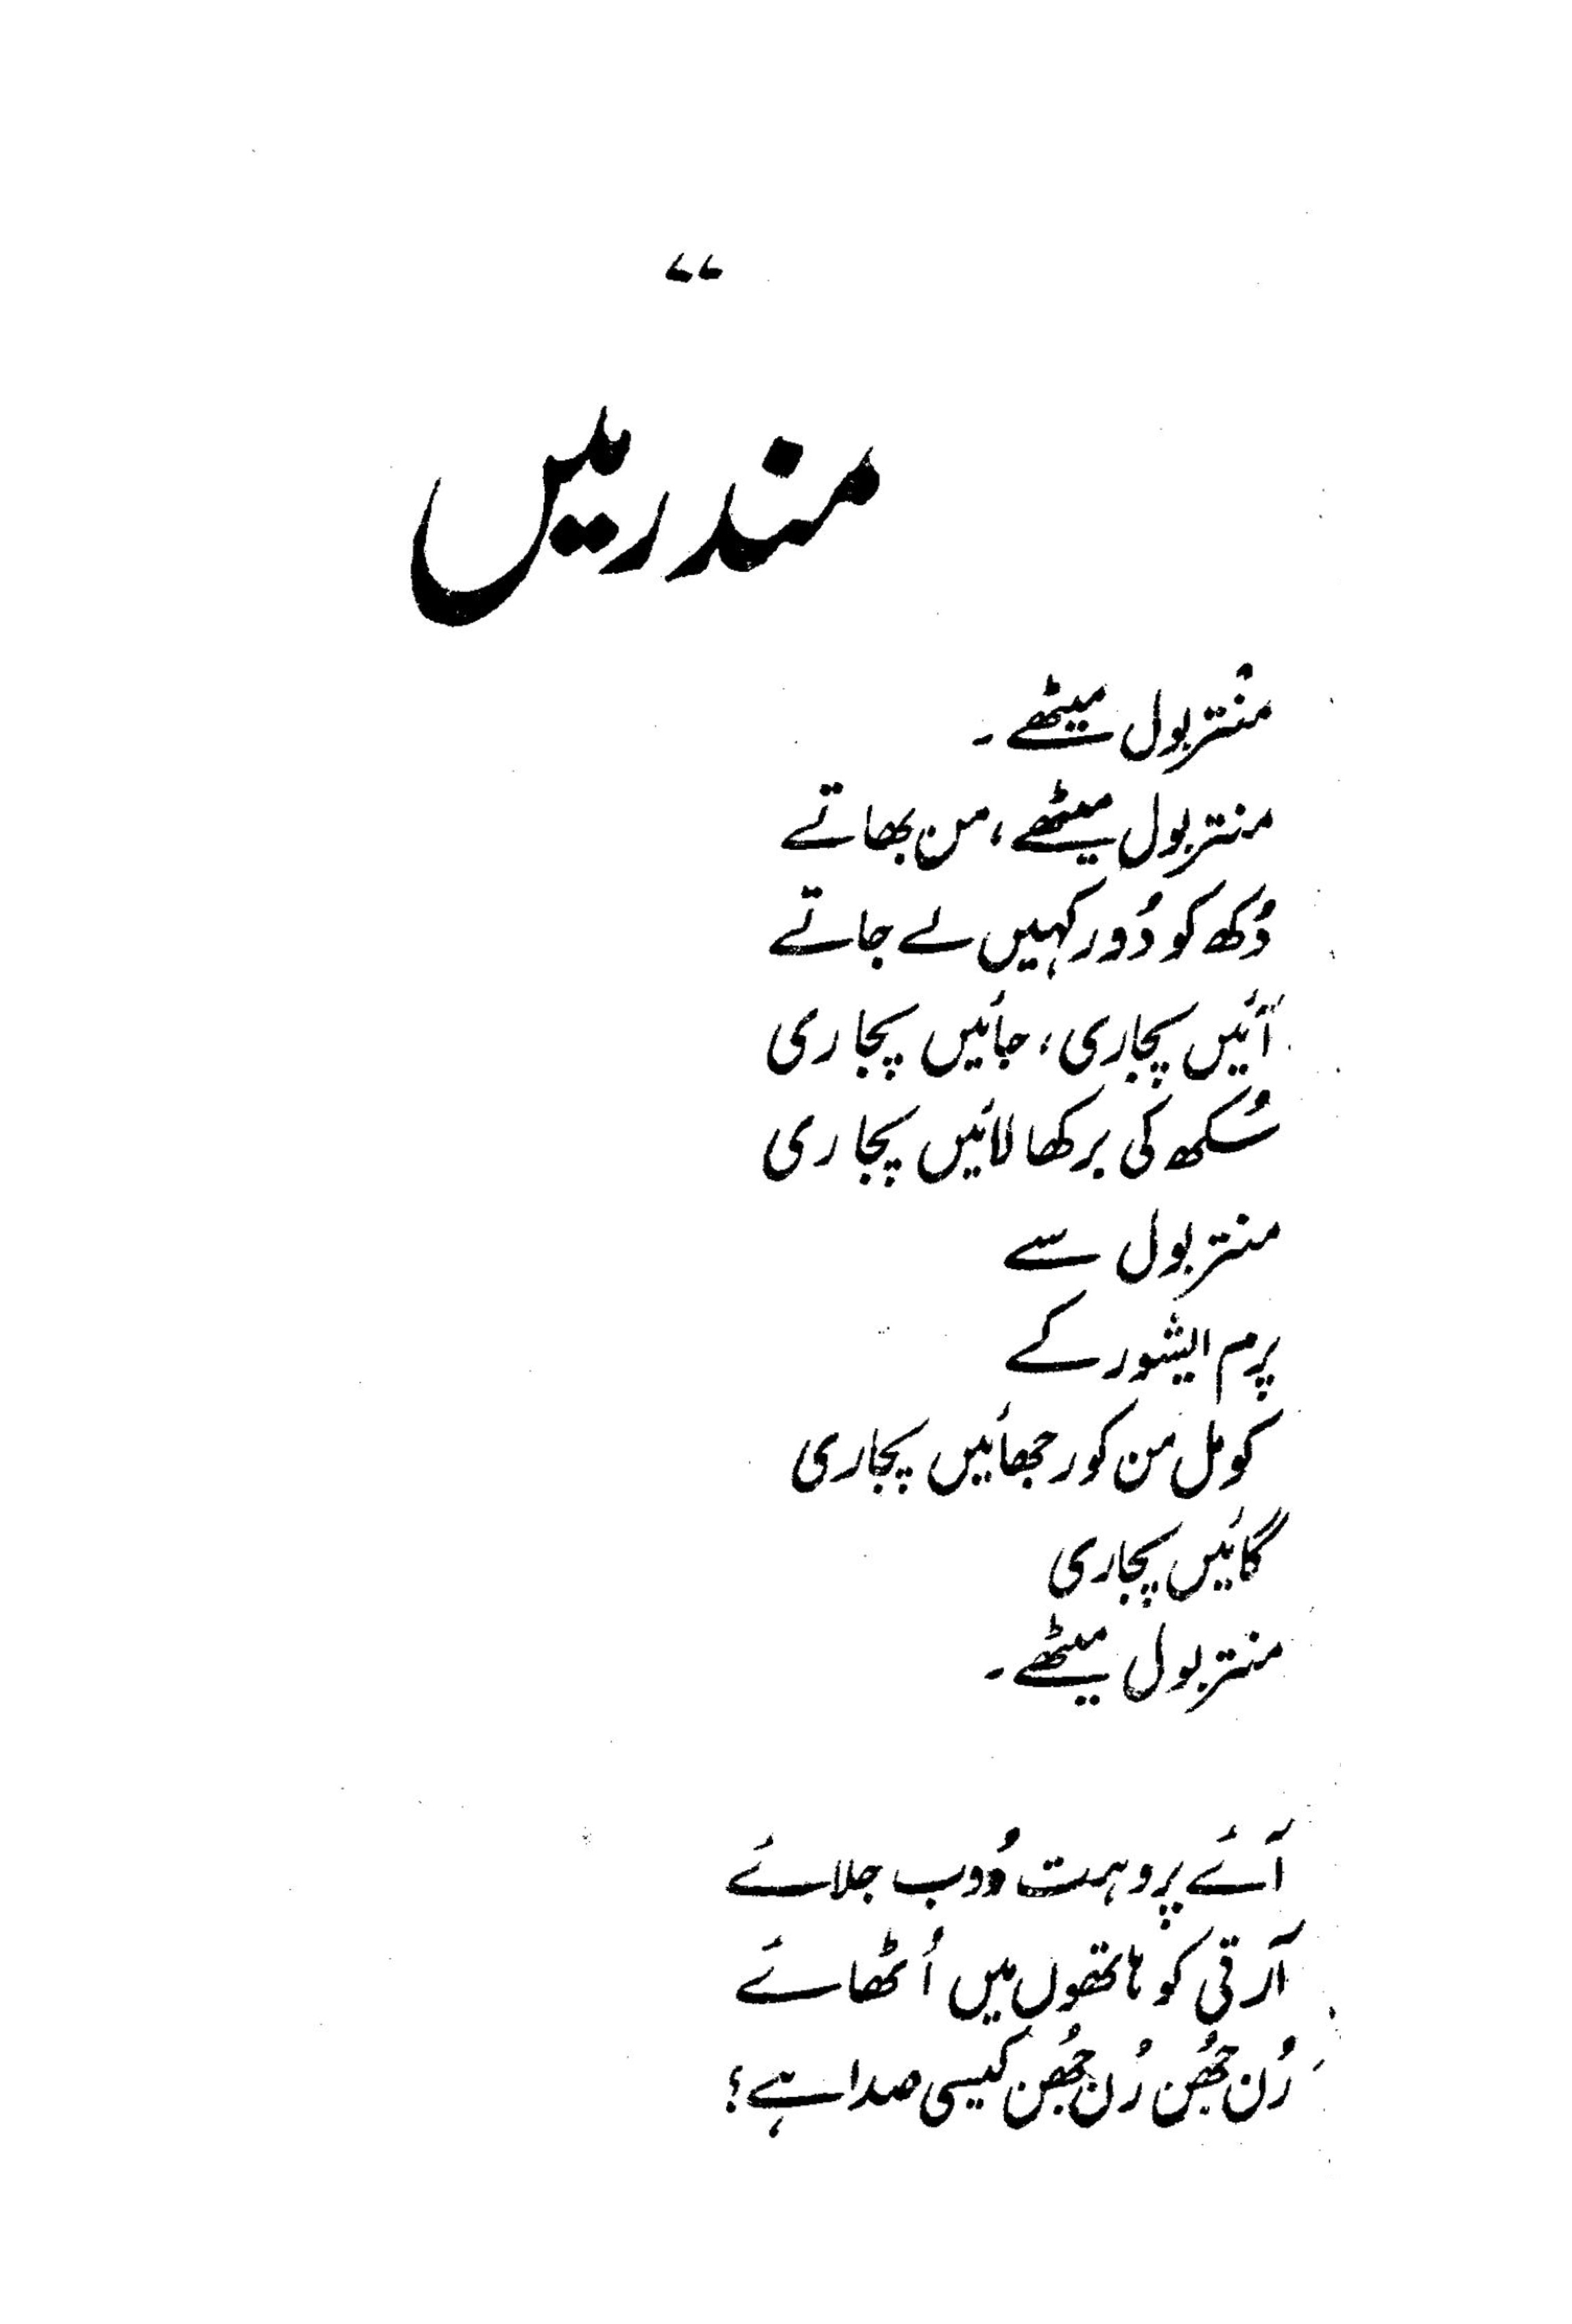 ۷۷
مندر میں
مُنتر بول میٹھے۔
منتر بول میٹھے، من بھاتے
دُکھ کو دُور کہیں لے جاتے
آئیں پجاری، جائیں پجاری
سُکھ کی برکھا لائیں پجاری
منتر بول سے
پرم ایشور کے
کومل من کو رجھائیں پجاری
گائیں پجاری
منتر بول میٹھے۔
آئے پروہت دُوب جلائے
آرتی کو ہاتھوں میں اُٹھائے
رُن جھُن رُن جھُن کیسی صدا ہے؟